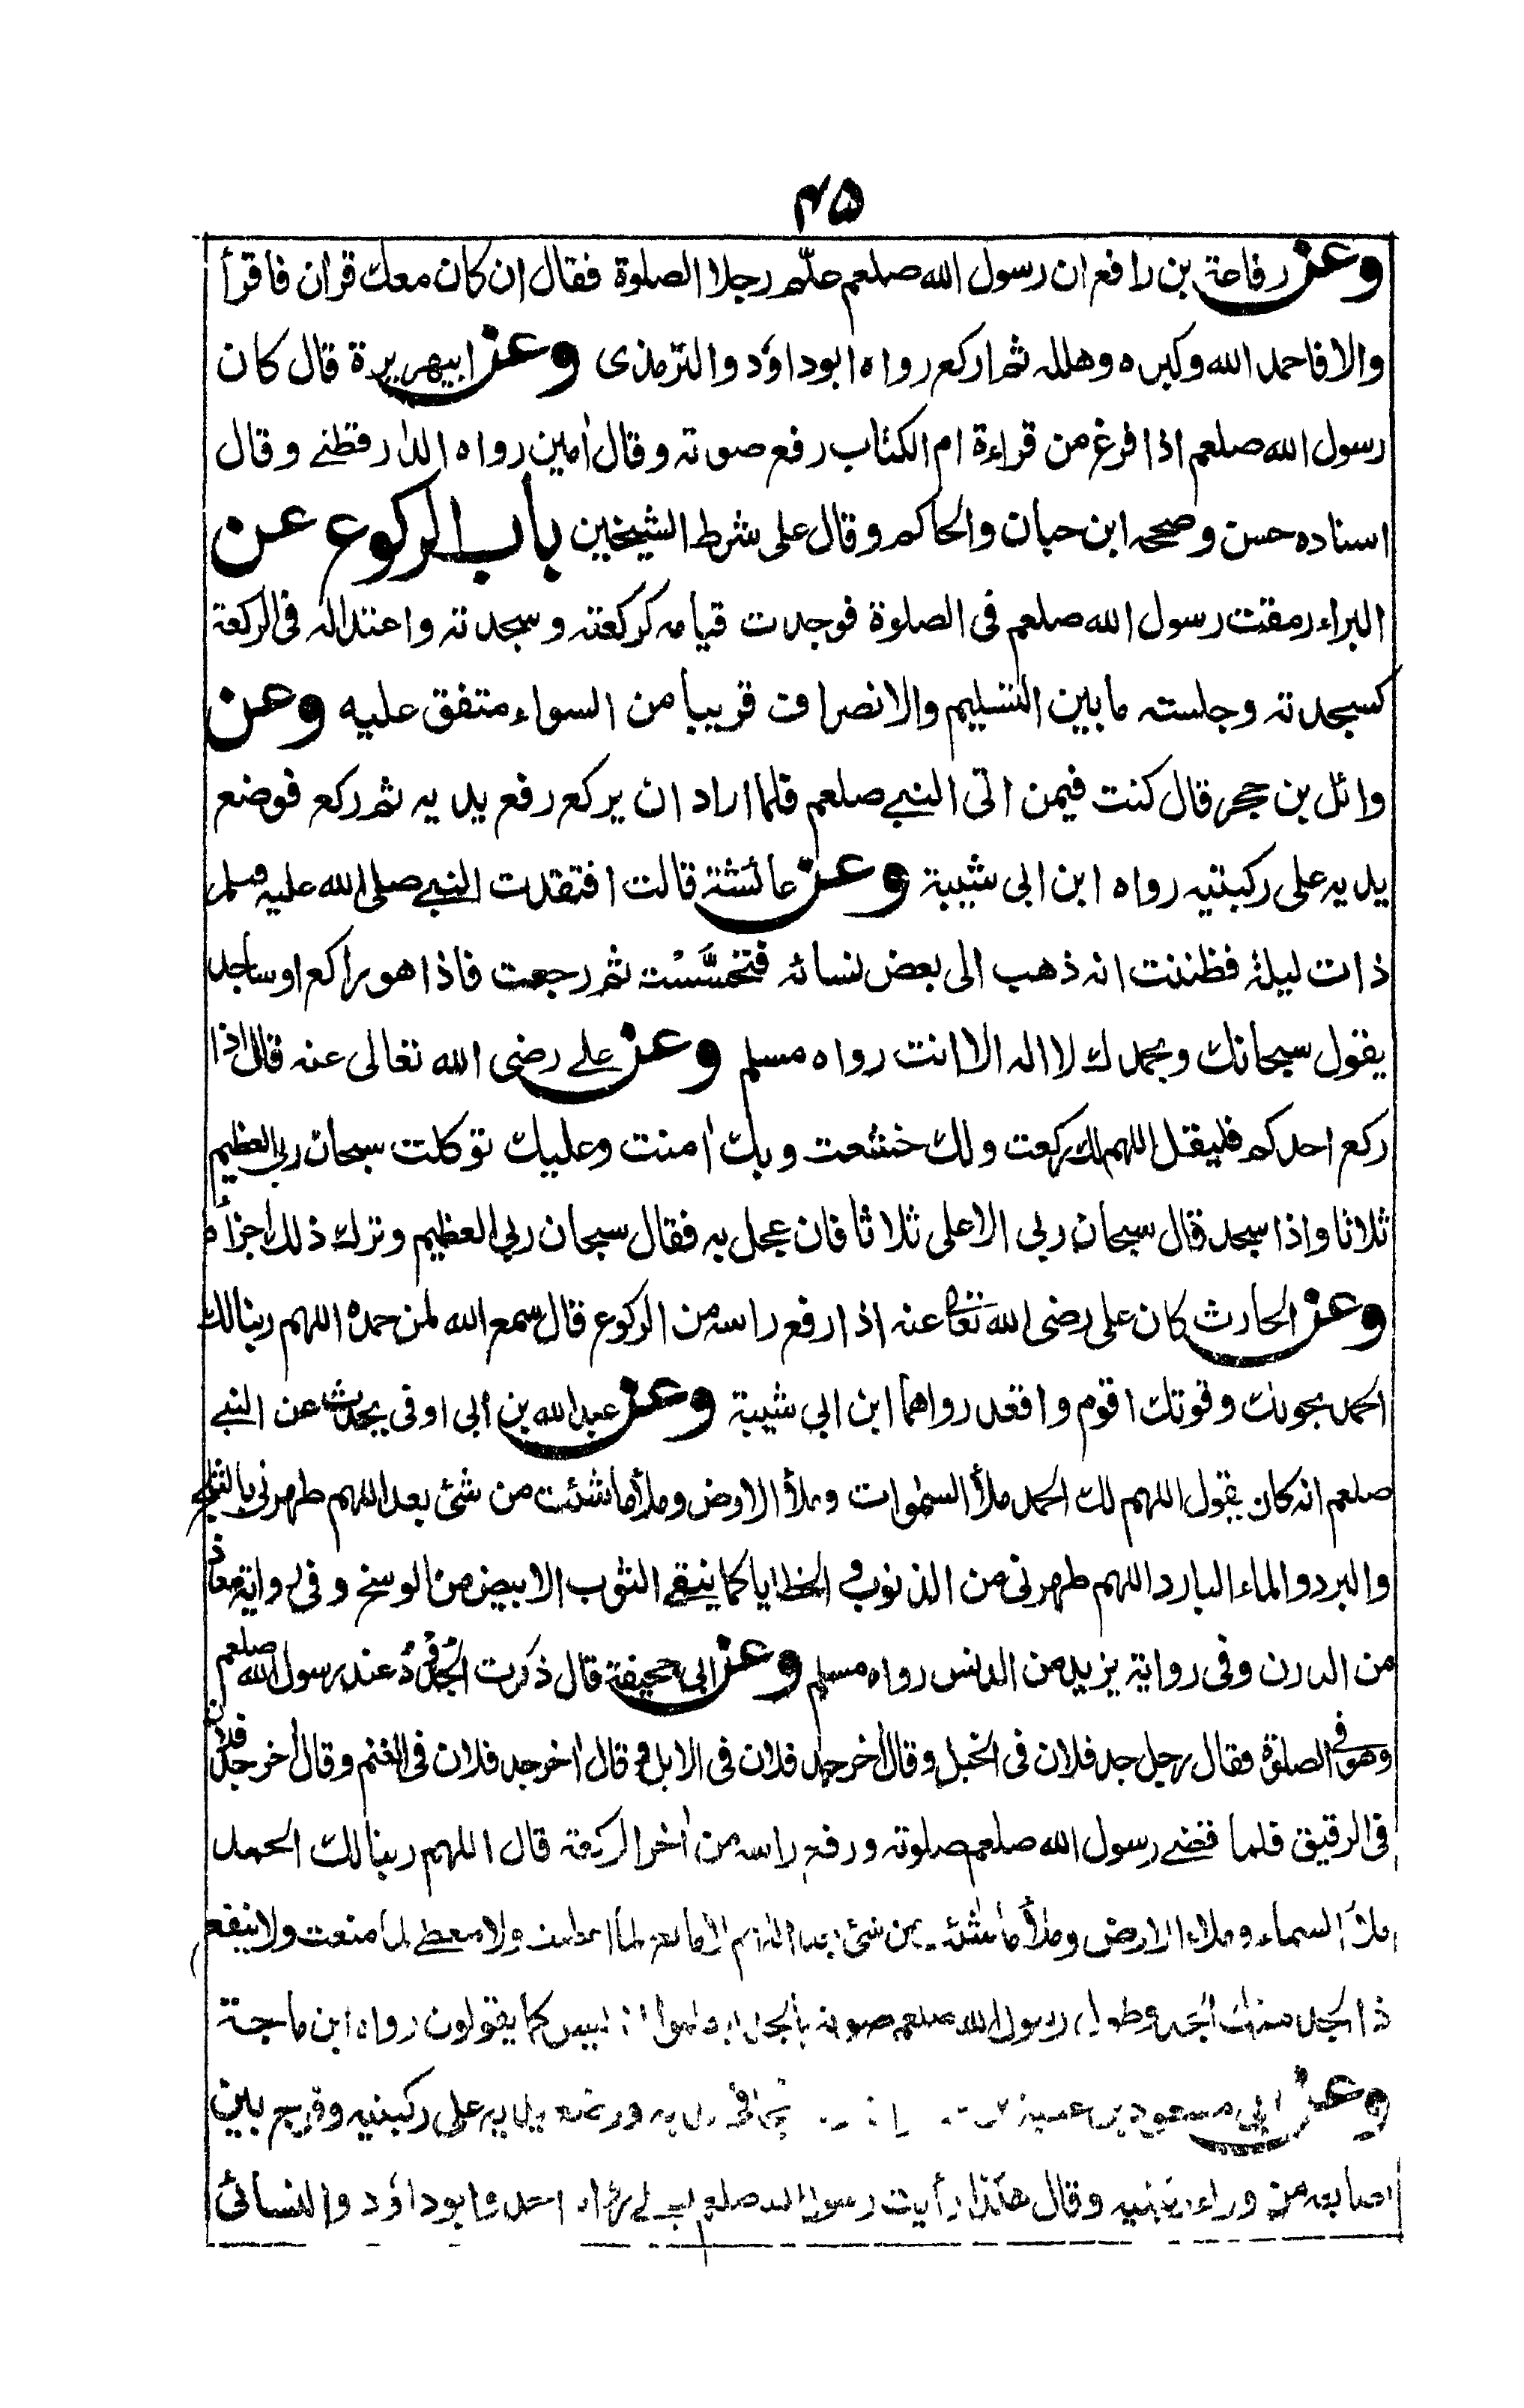 ۴۵
وعن رفاعة بن رافع ان رسول الله صلعم علّم رجلا الصلوة فقال ان كان معك قران فاقرأ
والا فاحمد الله وكبره وهلله ثم اركع رواه ابو داؤد والترمذى وعن ابيهريرة قال كان
رسول الله صلعم اذا فرغ من قراءة ام الكتاب رفع صوته وقال اٰمين رواه الدارقطنے وقال
اسناده حسن وصححه ابن حبان والحاكم وقال على شرط الشيخين باب الركوع عن
البراء رمقت رسول الله صلعم فى الصلوة فوجدت قيامه كركعته وسجدته واعتداله فى الركعة
كسجدته وجلسته مابين التسليم والانصراف قريبا من السواء متفق عليه وعن
وائل بن حجر قال كنت فيمن اتى النبے صلعم فلما اراد ان يركع رفع يديه ثم ركع فوضع
يديه على ركبتيه رواه ابن ابى شيبة وعن عائشة قالت افتقدت النبے صلى الله عليه وسلم
ذات ليلة فظننت انه ذهب الى بعض نسائه فتحسَّسْت ثم رجعت فاذا هو راكع او ساجد
يقول سبحانك وبحمدك لا اله الا انت رواه مسلم وعن علے رضى الله تعالى عنه قال اذا
ركع احدكم فليقل اللهم لك ركعت ولك خشعت وبك اٰمنت وعليك توكلت سبحان ربى العظيم
ثلاثا واذا سجد قال سبحان ربى الاعلى ثلاثا فان عجل به فقال سبحان ربى العظيم وترك ذلك اجزأه
وعن الحارث كان على رضى الله تعالى عنه اذا رفع راسه من الركوع قال سمع الله لمن حمده اللهم ربنا لك
الحمد بحولك وقوتك اقوم واقعد رواهما ابن ابى شيبة وعن عبد الله بن ابى اوفى يحدث عن النبے
صلعم انه كان يقول اللهم لك الحمد ملأ السمٰوات وملأ الارض وملأ ما شئت من شئ بعد اللهم طهرنى بالثلج
والبرد والماء البارد اللهم طهرنى من الذنوب و الخطايا كما ينقے الثوب الابيض من الوسخ وفى رواية معاذ
من الدرن وفى رواية يزيد من الدنس رواه مسلم وعن ابى جحيفة قال ذكرت الجُدُوْدُ عند رسول الله صلعم
وهو فى الصلوة فقال رجل جد فلان فى الخيل وقال اٰخر جد فلان فى الابل و قال اٰخر جد فلان فى الغنم وقال اٰخر جد فلان
فى الرقيق فلما قضے رسول الله صلعم صلوته ورفع راسه من اٰخر الركعة قال اللهم ربنا لك الحمد
ملأ السماء وملاء الارض وملأ ما شئت من شئ بعد اللهم لا مانع لما اعطيت ولا معطے لما منعت ولا ينفع
ذا الجد منك الجد وطول رسول الله صلعم صوته بالجد ليعلموا انه ليس كما يقولون رواه ابن ماجة
وعن ابى مسعود فجافى يديه ووضع يديه على ركبتيه وفرج بين
اصابعه من وراء ركبتيه وقال هكذا رأيت رسول الله صلعم يصلے رواه احمد وابو داؤد والنسائى